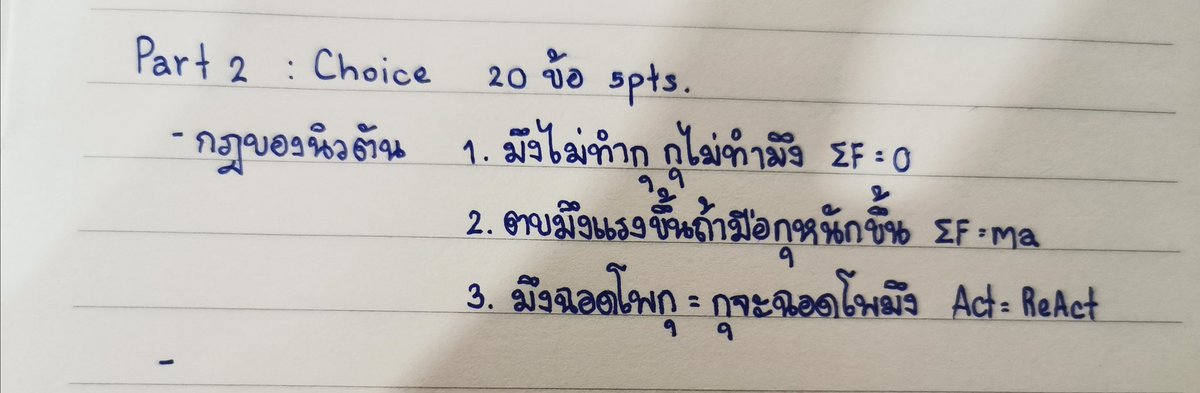 Part 2 : Choice 20 ข้อ 5pts.
- กฎของนิวตัน 1. มึงไม่ทำกุ กุไม่ทำมึง ΣF = 0
2. ตบมึงแรงขึ้นถ้ามือกุหนักขึ้น ΣF = ma
3. มึงฉอดโพกุ = กุจะฉอดโพมึง Act = ReAct
-